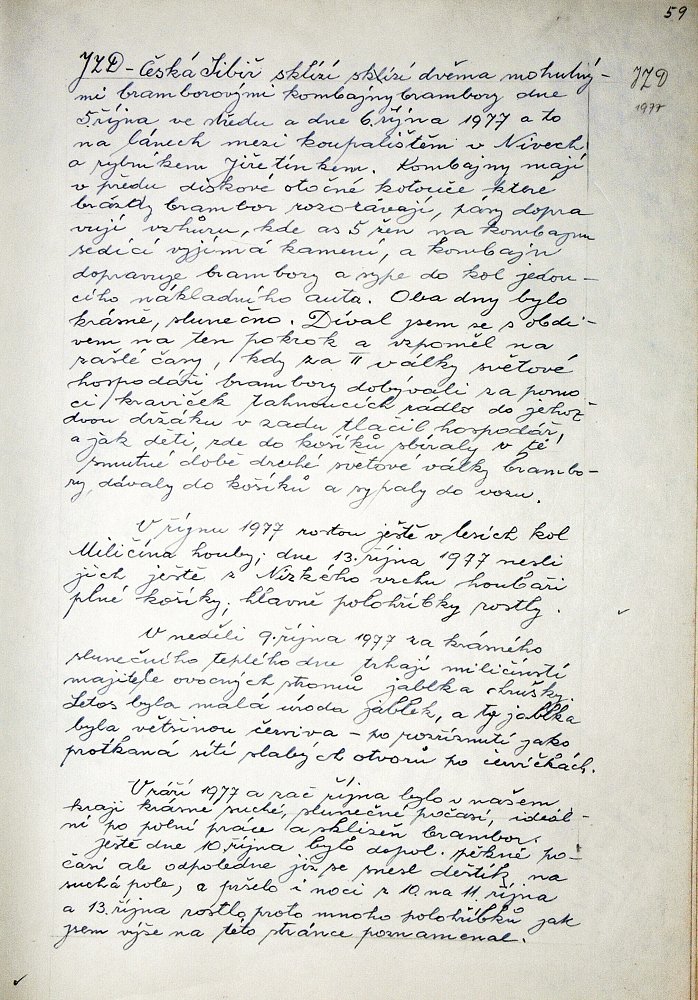 59
JZD
1977
JZD - Česká Sibiř sklízí sklízí dvěma mohutný-
mi bramborovými kombajny brambory dne
5 října ve středu a dne 6. října 1977 a to
na lánech mezi koupalištěm v Nivech
a rybníkem Jiřetínkem. Kombajny mají
v předu diskové otočné kotouče které
brázdy brambor rozorávají, pásy dopra
vují vzhůru, kde as 5 žen na kombajnu
sedící vyjímá kamení, a kombajn
dopravuje brambory a sype do kol jedou-
cího nákladního auta. Oba dny bylo
krásně, slunečno. Díval jsem se s obdi-
vem na ten pokrok a vzpoměl na
zašlé časy, kdy za II války světové
hospodáři brambory dobývali za pomo
ci kraviček tahnoucích radlo do jehož
dvou držáku v zadu tlačil hospodář,
a jak deti, zde do košíků sbíraly v té
smutné době druhé světové války brambo-
ry, dávaly do košíků a sypaly do vozu.
V říjnu 1977 rostou ještě v lesích kol
Miličína houby; dne 13. října 1977 nesli
jich ještě z Nízkého vrchu houbaři
plné košíky; hlavně polohříbky rostly.
V neděli 9. října 1977 za krásného
slunečního teplého dne trhají miličínstí
majitele ovocných stromů jablka a hrušky.
Letos byla malá úroda jablek, a ty jablka
byla většinou červiva - po rozříznutí jako
protkaná sítí slabých otvorů po červíčkách.
V září 1977 a zač října bylo v našem
kraji krásné suché, slunečné počasí, ideál-
ní po polní práce a sklizeň brambor.
Ještě dne 10. října bylo dopol. pěkné po-
časí ale odpoledne již se snesl deštík na
suchá pole, a pršelo i noci z 10. na 11. října
a 13. října rostlo proto mnoho polohříbků jak
jsem výše na této stránce poznamenal.